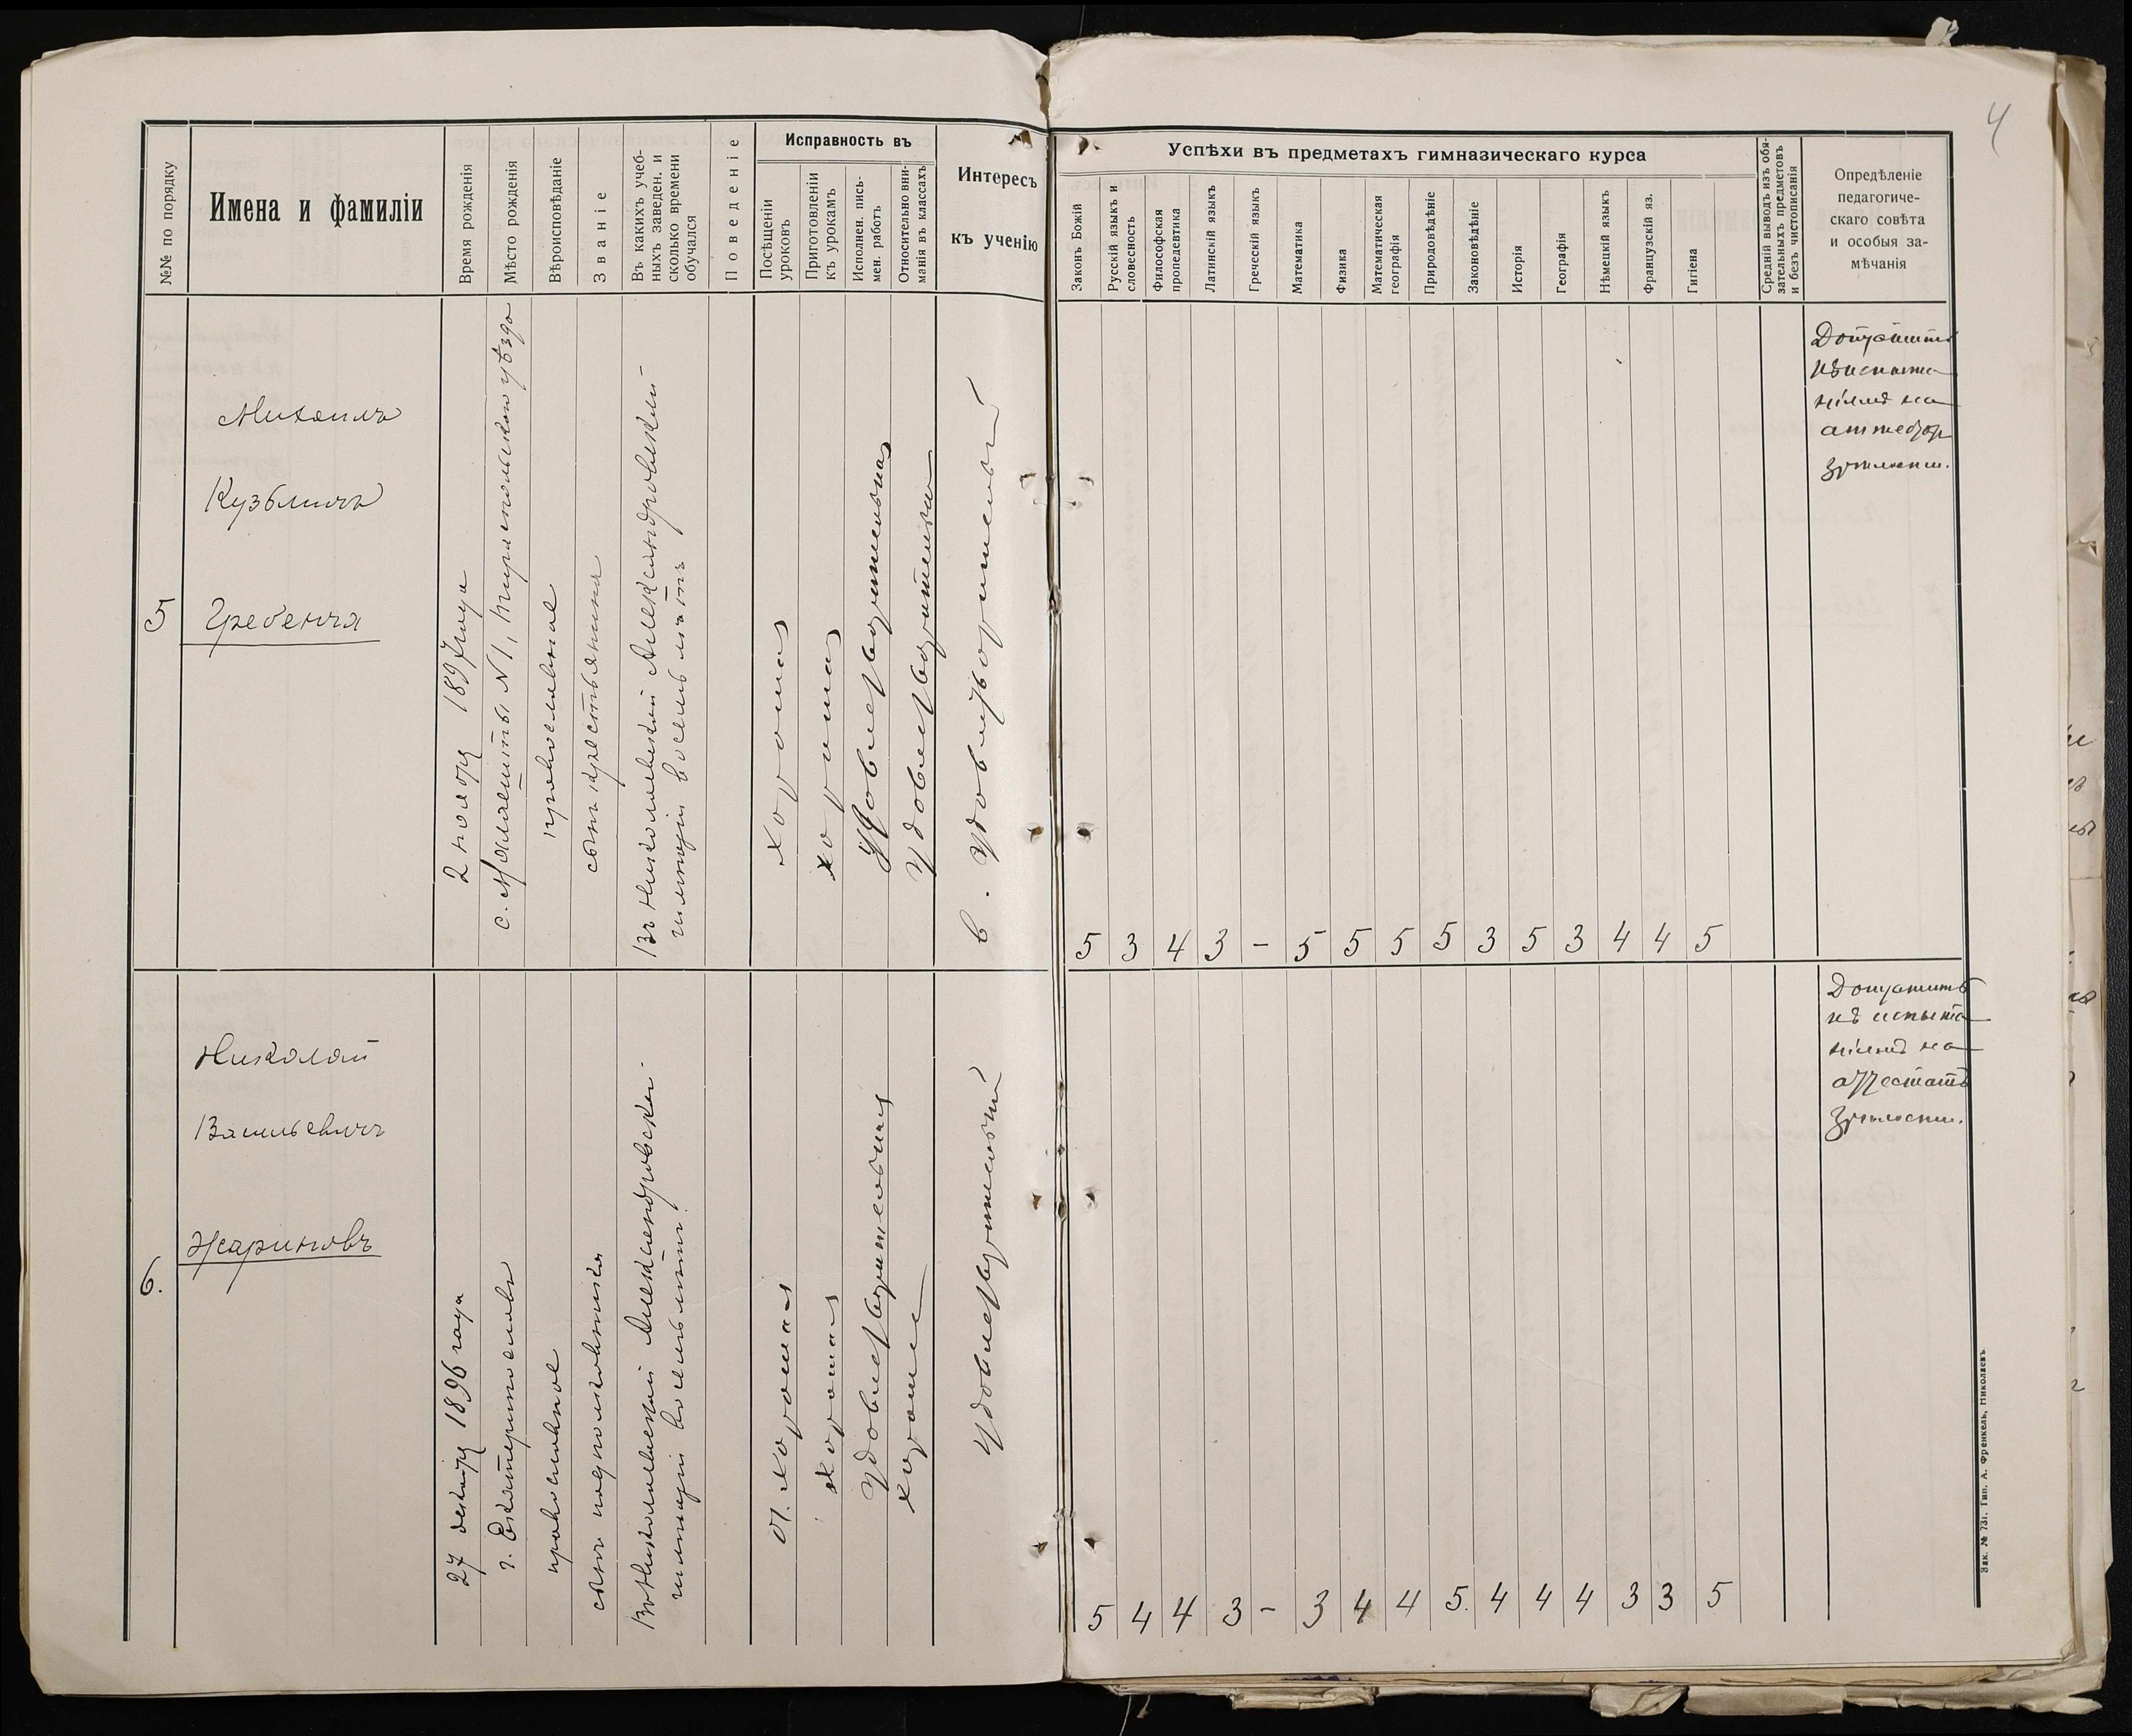 4
№№ по порядку
Имена и фамиліи
Время рожденія
Мѣсто рожденія
Вѣроисповѣданіе
Званіе
Въ какихъ учеб-
ныхъ заведен. и
сколько времени
обучался
Поведеніе
Исправность въ
Посѣщеніи
уроковъ
Приготовленіи
къ урокамъ
Исполнен. пись-
мен. работъ
Относительно вни-
манія въ классахъ
Интересъ
къ ученію
Успѣхи въ предметахъ гимназическаго курса
Законъ Божій
Русскій языкъ и
словесность
Философская
пропедевтика
Латинскій языкъ
Греческій языкъ
Математика
Физика
Математическая
географія
Природовѣдѣніе
Законовѣдѣніе
Исторія
Географія
Нѣмецкій языкъ
Французскій яз.
Гигіена
Средній выводъ изъ обя-
зательныхъ предметовъ
и безъ чистописанія
Опредѣленіе
педагогиче-
скаго совѣта
и особыя за-
мѣчанія
5
Михаилъ
Кузьмичъ
Гребенча
2 ноября 1897 года
с. Малаешты № 1, Тираспольскаго уѣзда
православное
сынъ крестьянина
Въ Николаевской Александровской
гимназіи восемь лѣтъ
хорошая
хорошая
удовлетворительная
удовлетворительно
в. удовлетворительный
5 3 4 3 - 5 5 5 5 3 5 3 4 4 5
Допустить
къ испыта
ніямъ на
аттестатъ
зрѣлости.
6.
Николай
Васильевичъ
Жариновъ
27 декабря 1896 года
г. Екатеринославъ
православное
сынъ подполковника
Въ Николаевской Александровской
гимназіи восемь лѣтъ.
от. хорошая
хорошая
удовлетворительная
хорошее
удовлетворительный
5 4 4 3 - 3 4 4 5. 4 4 4 3 3 5
Допустить
къ испыта
ніямъ на
аттестатъ
зрѣлости.
Зак. № 731. Тип. А. Френкель, Николаевъ